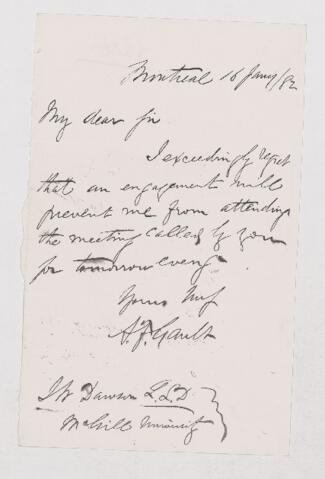 Montreal 16 Jany/82
My dear Sir
I exceedingly regret
that an engagement will
prevent me from attending
the meeting called by you
for tomorrow eveng
Yours truly
A.F. Gault
J W Dawson L.L.D
McGill University